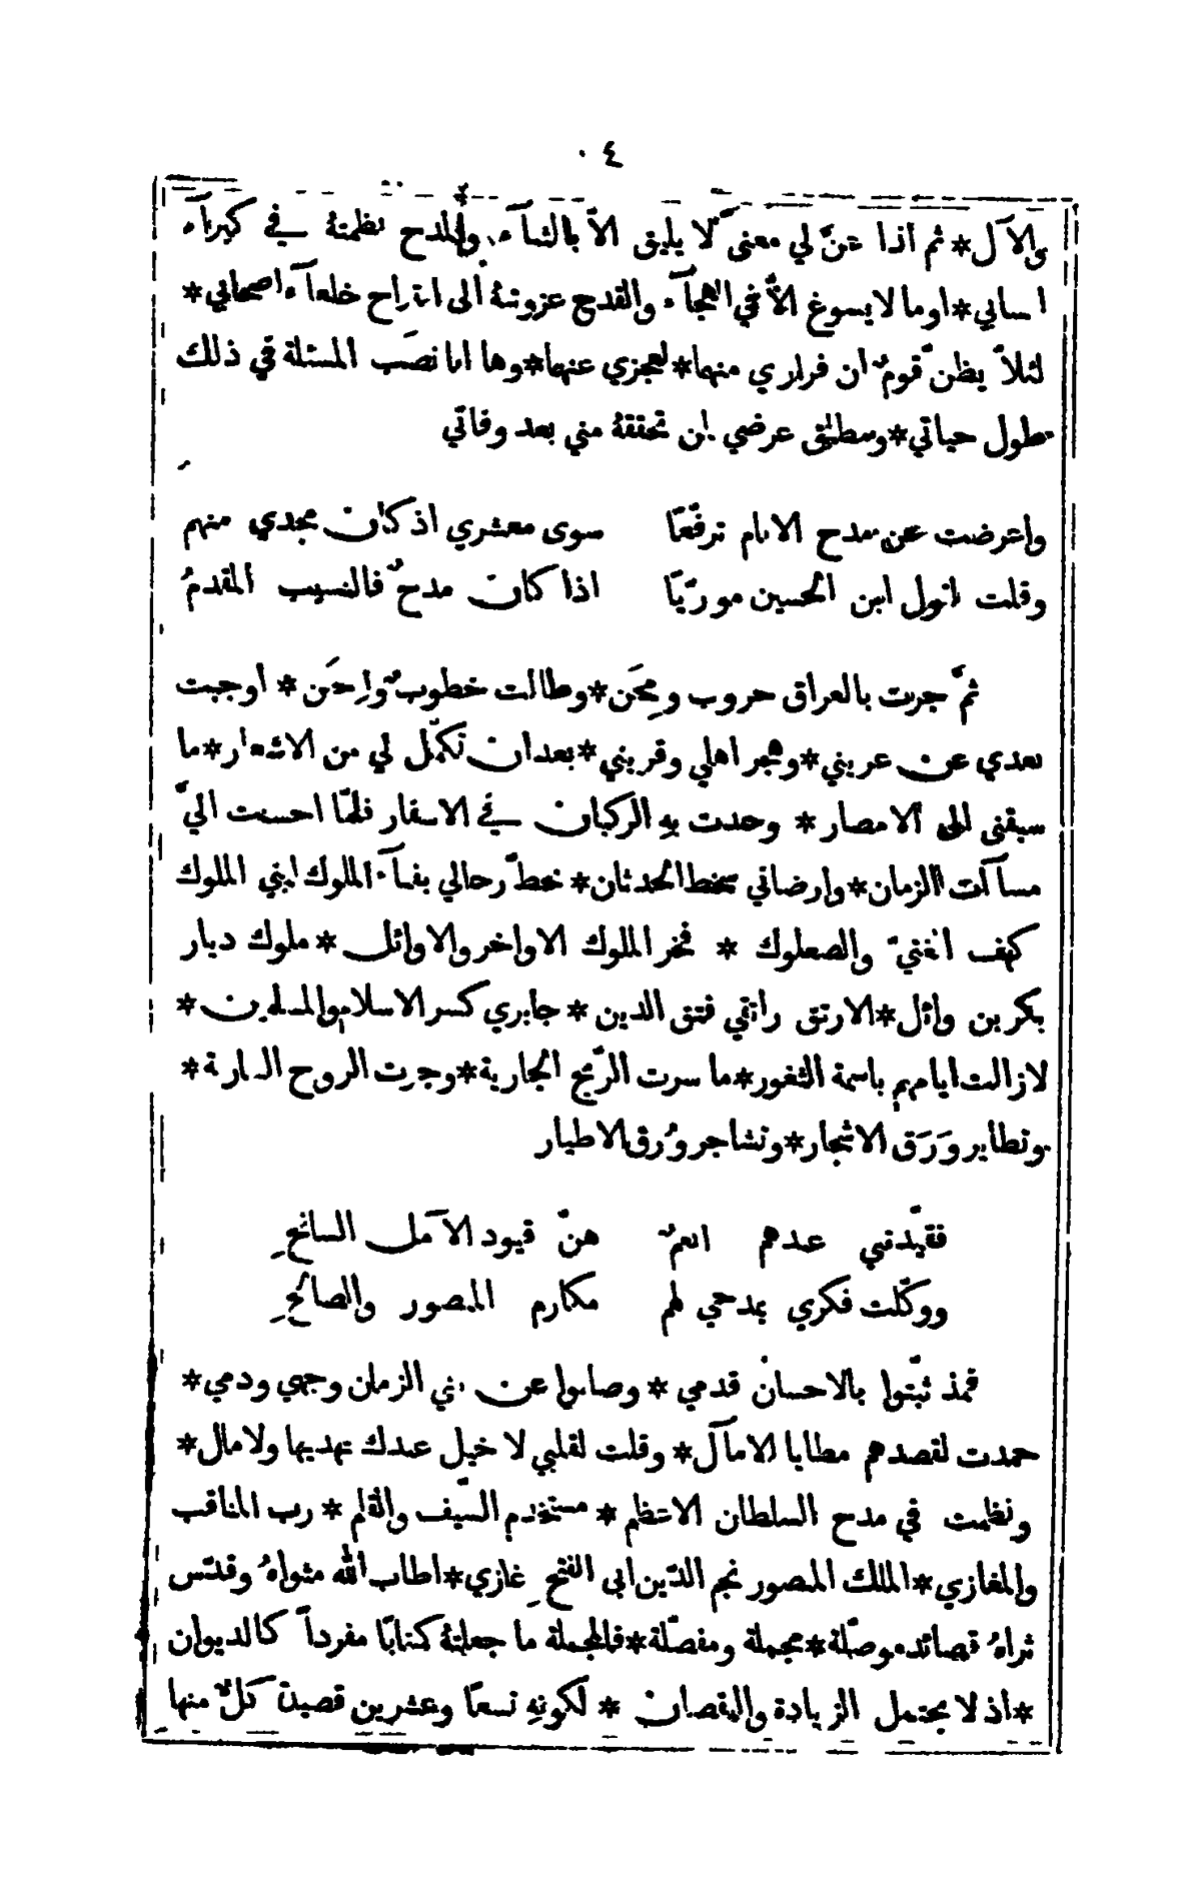 ٤
والآل * ثم اذا عنّ لي معنى لا يليق الاّ بالثنآء والمدح نظمتهُ في كبرآء
انسابي * او ما لا يسوغ الاّ في الهجآء والقدح عزوتهُ الى اقتراح خلعآء اصحابي *
لئلاّ يظنّ قومٌ ان فراري منها * لعجزي عنها * وها انا نصَب المسئلة في ذلك
طول حياتي * ومطلق عرضي لمن تحققهُ مني بعد وفاتي
واعرضت عن مدح الانام ترفّعًا سوى معشري اذ كان مجدي منهم
وقلت لقول ابن الحسين مورّيًا اذا كان مدحٌ فالنسيب المقدمُ
ثمّ جرت بالعراق حروب ومِحَن * وطالت خطوبٌ واِحَن * اوجبت
بعدي عن عريني * وهجر اهلي وقريني * بعد ان تكمّل لي من الاشعار * ما
سبقني الى الامصار * وحدت بهِ الركبان في الاسفار فلمّا احسنت اليّ
مسآآت الزمان * وارضاني سخط الحدثان * حطّ رحالي بفنآء الملوك ابني الملوك
كهف الغنيّ والصعلوك * فخر الملوك الاواخر والاوائل * ملوك ديار
بكر بن وائل * الارتق راتقي فتق الدين * جابري كسر الاسلام والمسلمين *
لازالت ايامهم باسمة الثغور * ما سرت الرّيح الجارية * وجرت الروح السارية *
وتطاير وَرَق الاشجار * وتشاجر وُرق الاطيار
فقيّدتني عندهم انعمٌ هنّ قيود الآمل السانحِ
ووكّلت فكري بمدحي لهم مكارم المنصور والصالحِ
فمذ ثبّتوا بالاحسان قدمي * وصانوا عن بني الزمان وجهي ودمي *
حمدت لقصدهم مطايا الامآل * وقلت لقلبي لا خيل عندك تهديها ولا مال *
ونظمت في مدح السلطان الاعظم * مستخدم السّيف والقلم * رب المناقب
والمغازي * الملك المنصور نجم الدّين ابي الفتحِ غازي * اطاب الله مثواهُ وقدّس
ثراهُ قصائد موصّلة * مجملة ومفصّلة * فالمجملة ما جعلتهُ كتابًا مفرداً كالديوان
* اذ لا يحتمل الزيادة والنقصان * لكونهِ تسعًا وعشرين قصيدة كلّ منها